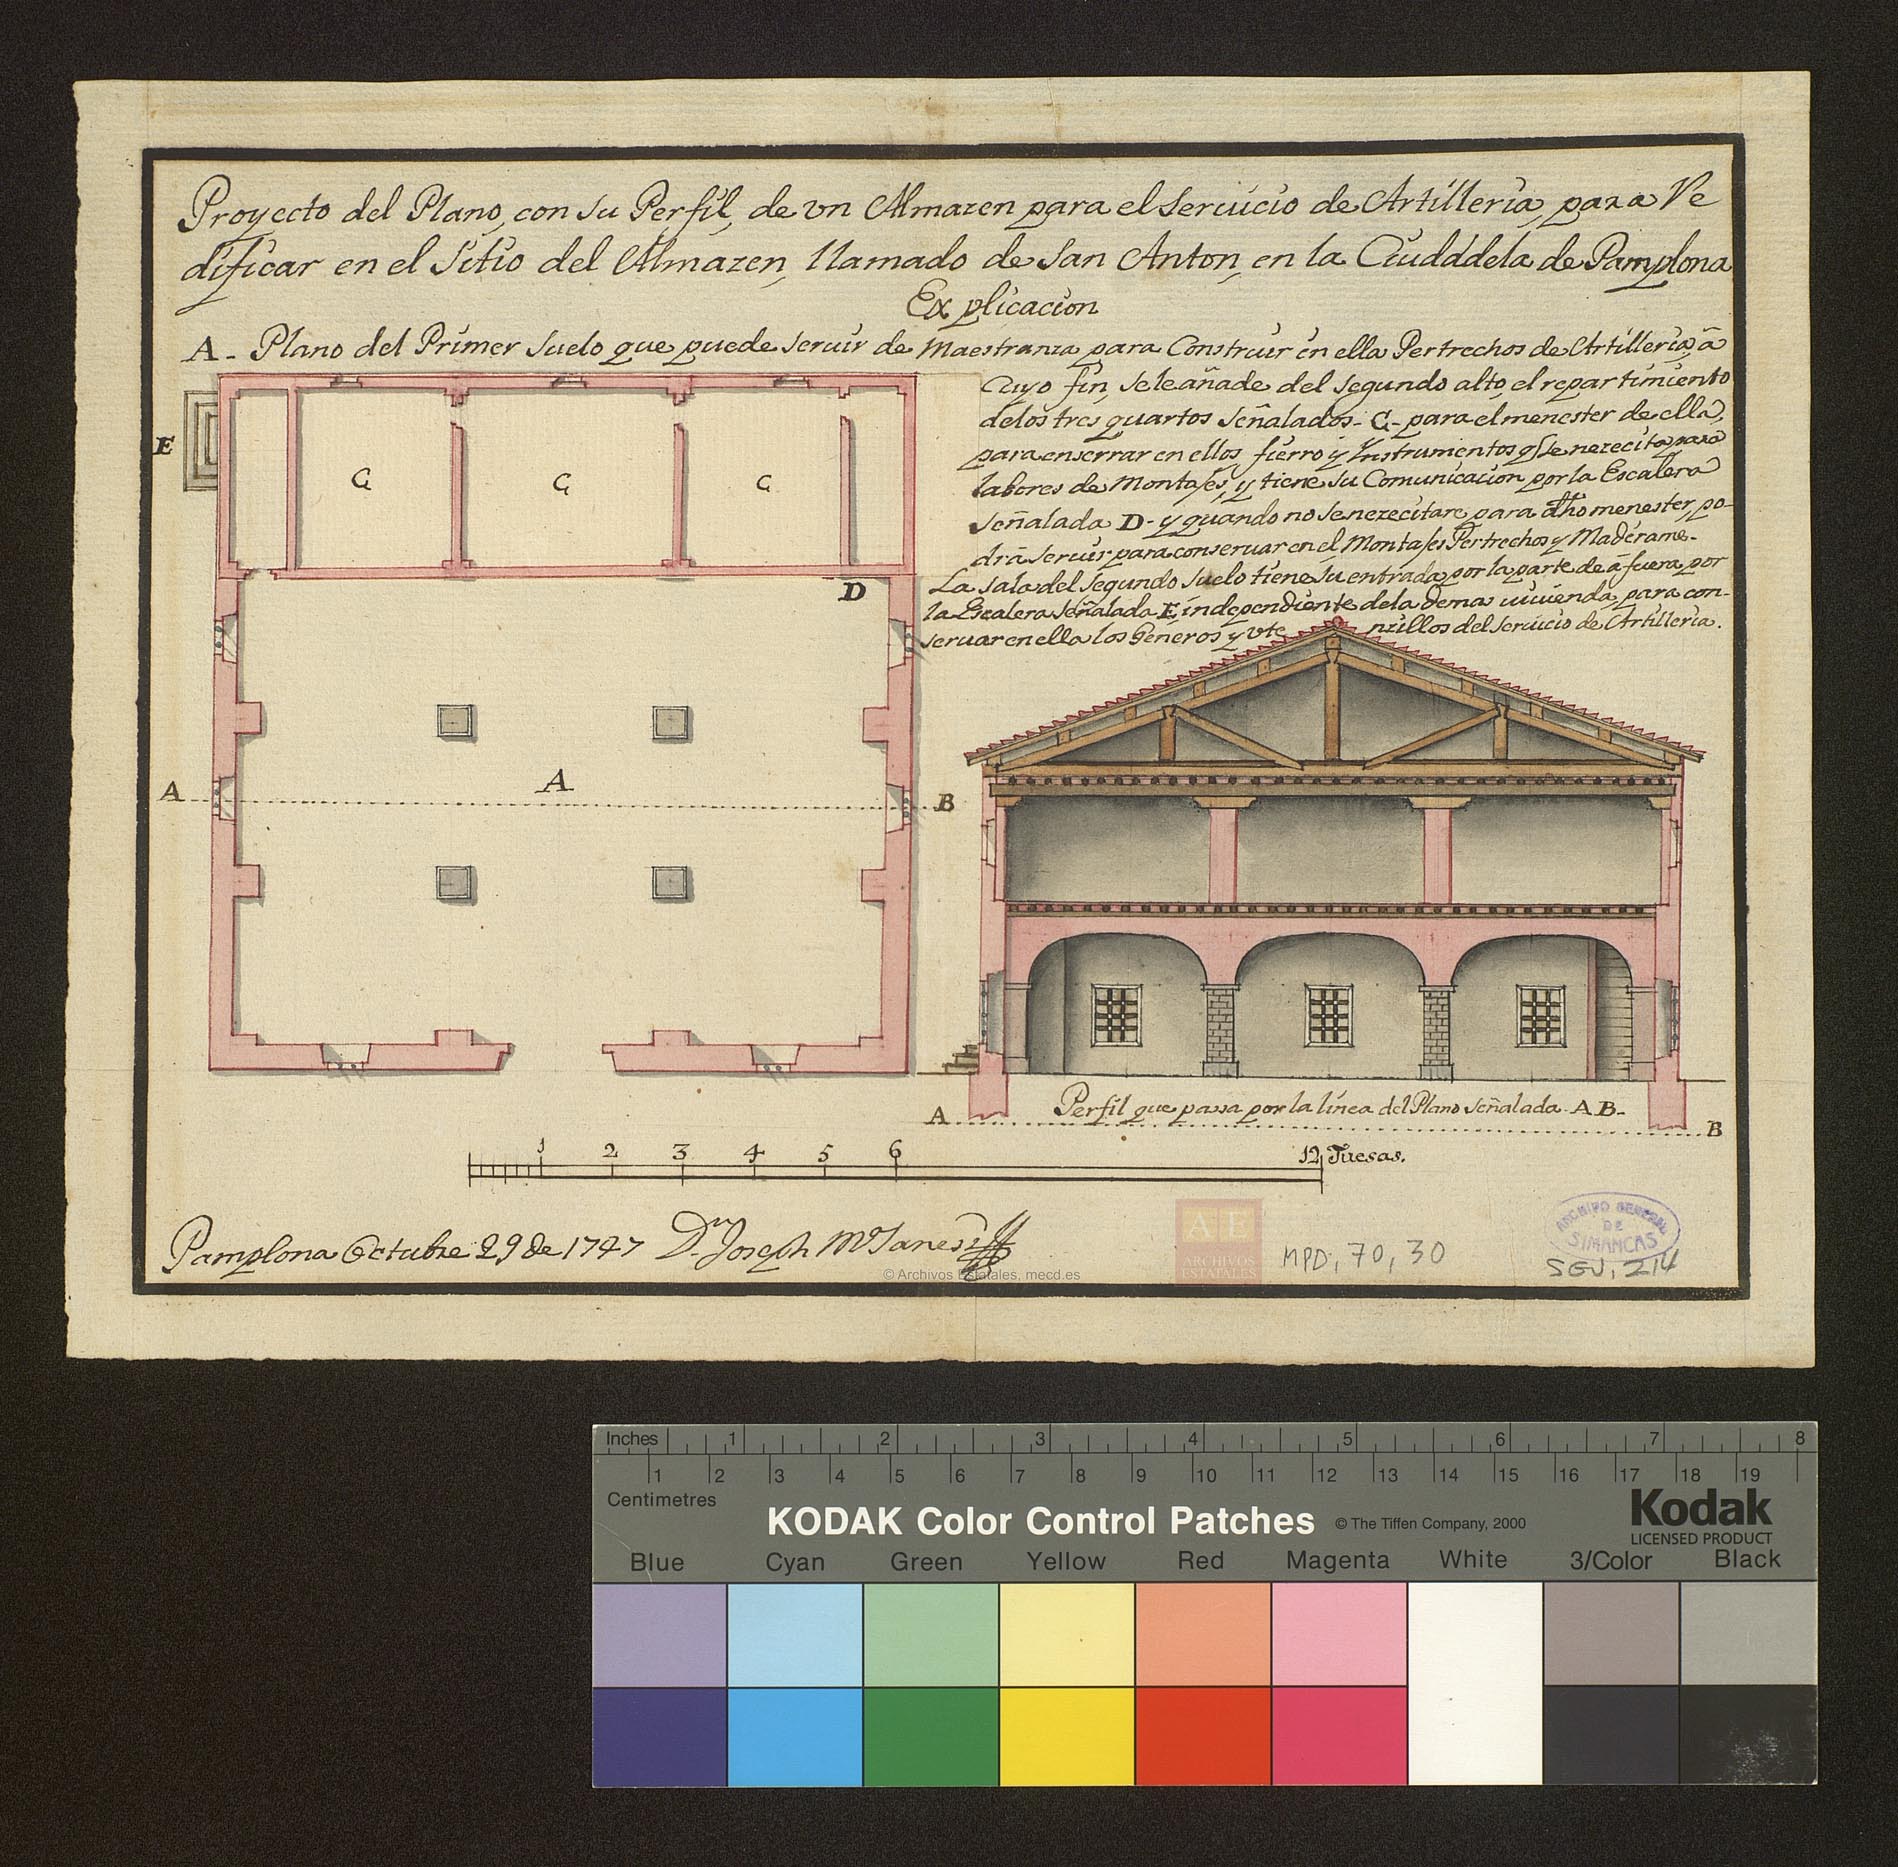 Proyecto del Plano, con su Perfil, de vn Almazen para el Seruicio de Artilleria, para Re
dificar en el Sitio del Almazen, llamado de San Anton, en la Ciudadela de Pamplona
Explicacion
A - Plano del Primer Suelo que puede Seruir de Maestranza para Construir en ella Pertrechos de Artilleria, â
Cuyo fin, se le añade del segundo alto, el repartimiento
de los tres quartos señalados - C - para el menester de ella,
para enserrar en ellos fierro y Ynstrumentos q se nezecita para
labores de Montajes, y tiene su Comunicacion por la Escalera
señalada D - y quando no se nezecitare para dho menester, po-
drâ seruir para conseruar en el Montajes Pertrechos y Maderame -
La sala del segundo suelo tiene su entrada por la parte de â fuera por
la Escalera señalada E independiente de la demas viuienda, para con-
seruar en ella los Generos y vte nzillos del seruicio de Artilleria.
E
C C C
D
A A B
Perfil que passa por la linea del Plano señalada A B -
A B
1 2 3 4 5 6 12 Tuesas.
Pamplona Octubre 29 de 1747 Dn Joseph
AE
ARCHIVOS
ESTATALES
© Archivos Estatales, mecd.es
MPD, 70, 30
ARCHIVO GENERAL
DE
SIMANCAS
SGU, 214
Inches 1 2 3 4 5 6 7 8
1 2 3 4 5 6 7 8 9 10 11 12 13 14 15 16 17 18 19
Centimetres
KODAK Color Control Patches © The Tiffen Company, 2000
Kodak
LICENSED PRODUCT
Blue Cyan Green Yellow Red Magenta White 3/Color Black